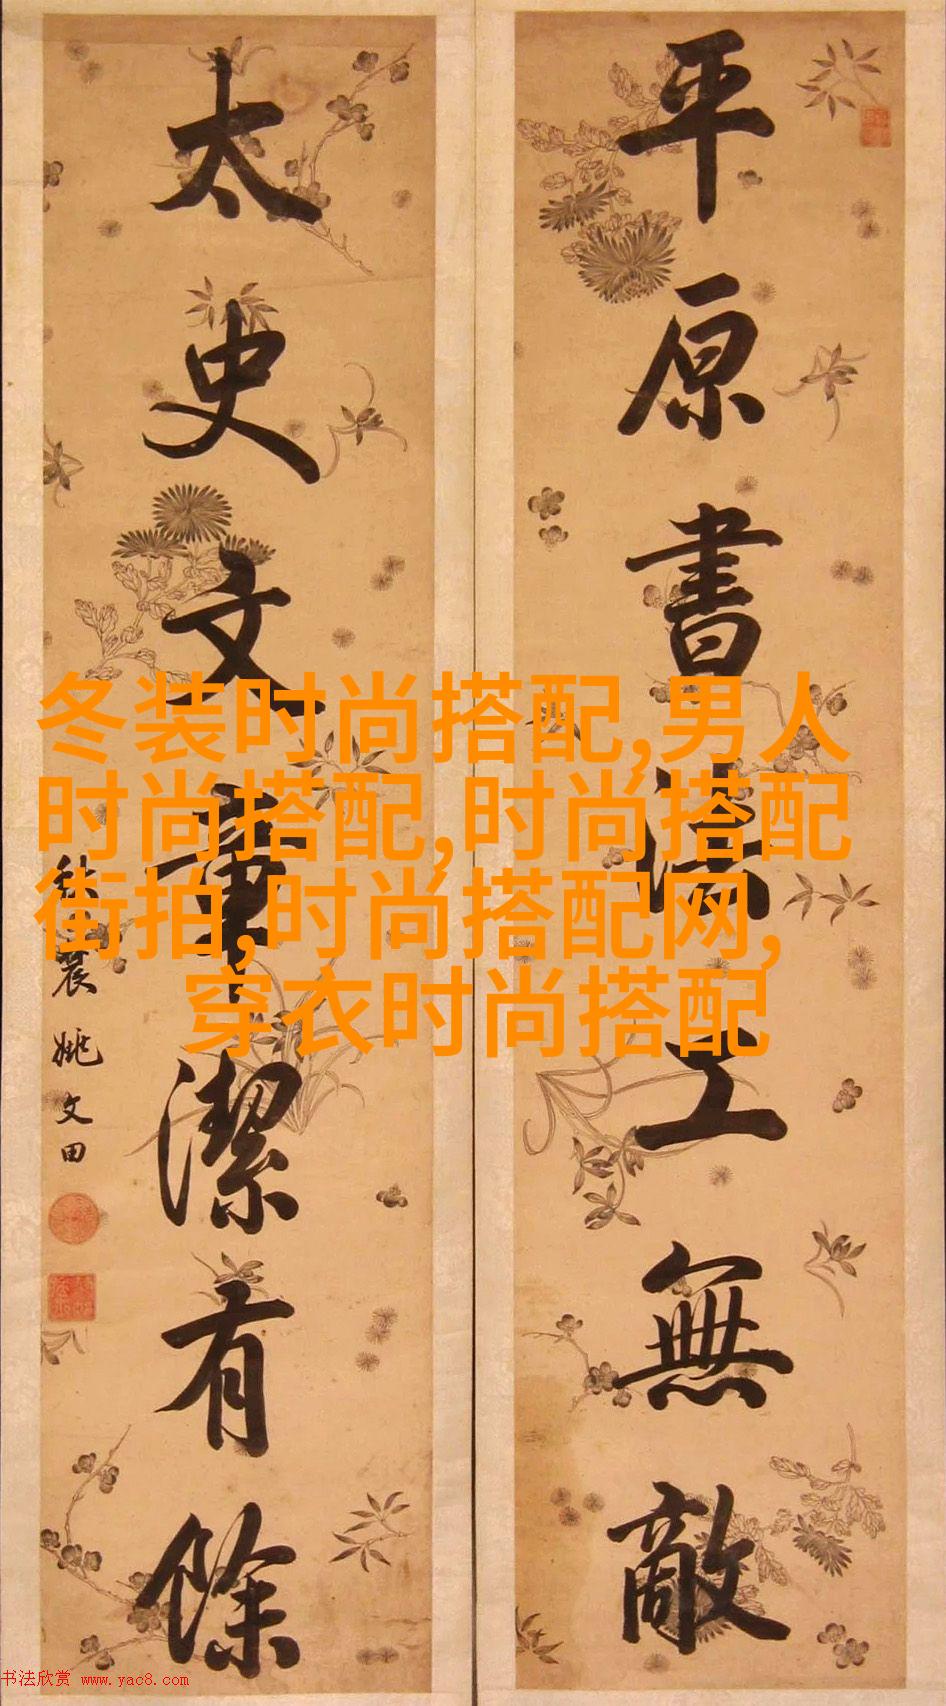 平原書法工無敵
太史文章潔有餘
秋農姚文田
冬装时尚搭配,男人
时尚搭配,时尚搭配
街拍,时尚搭配网,
穿衣时尚搭配
书法欣赏 www.yac8.com